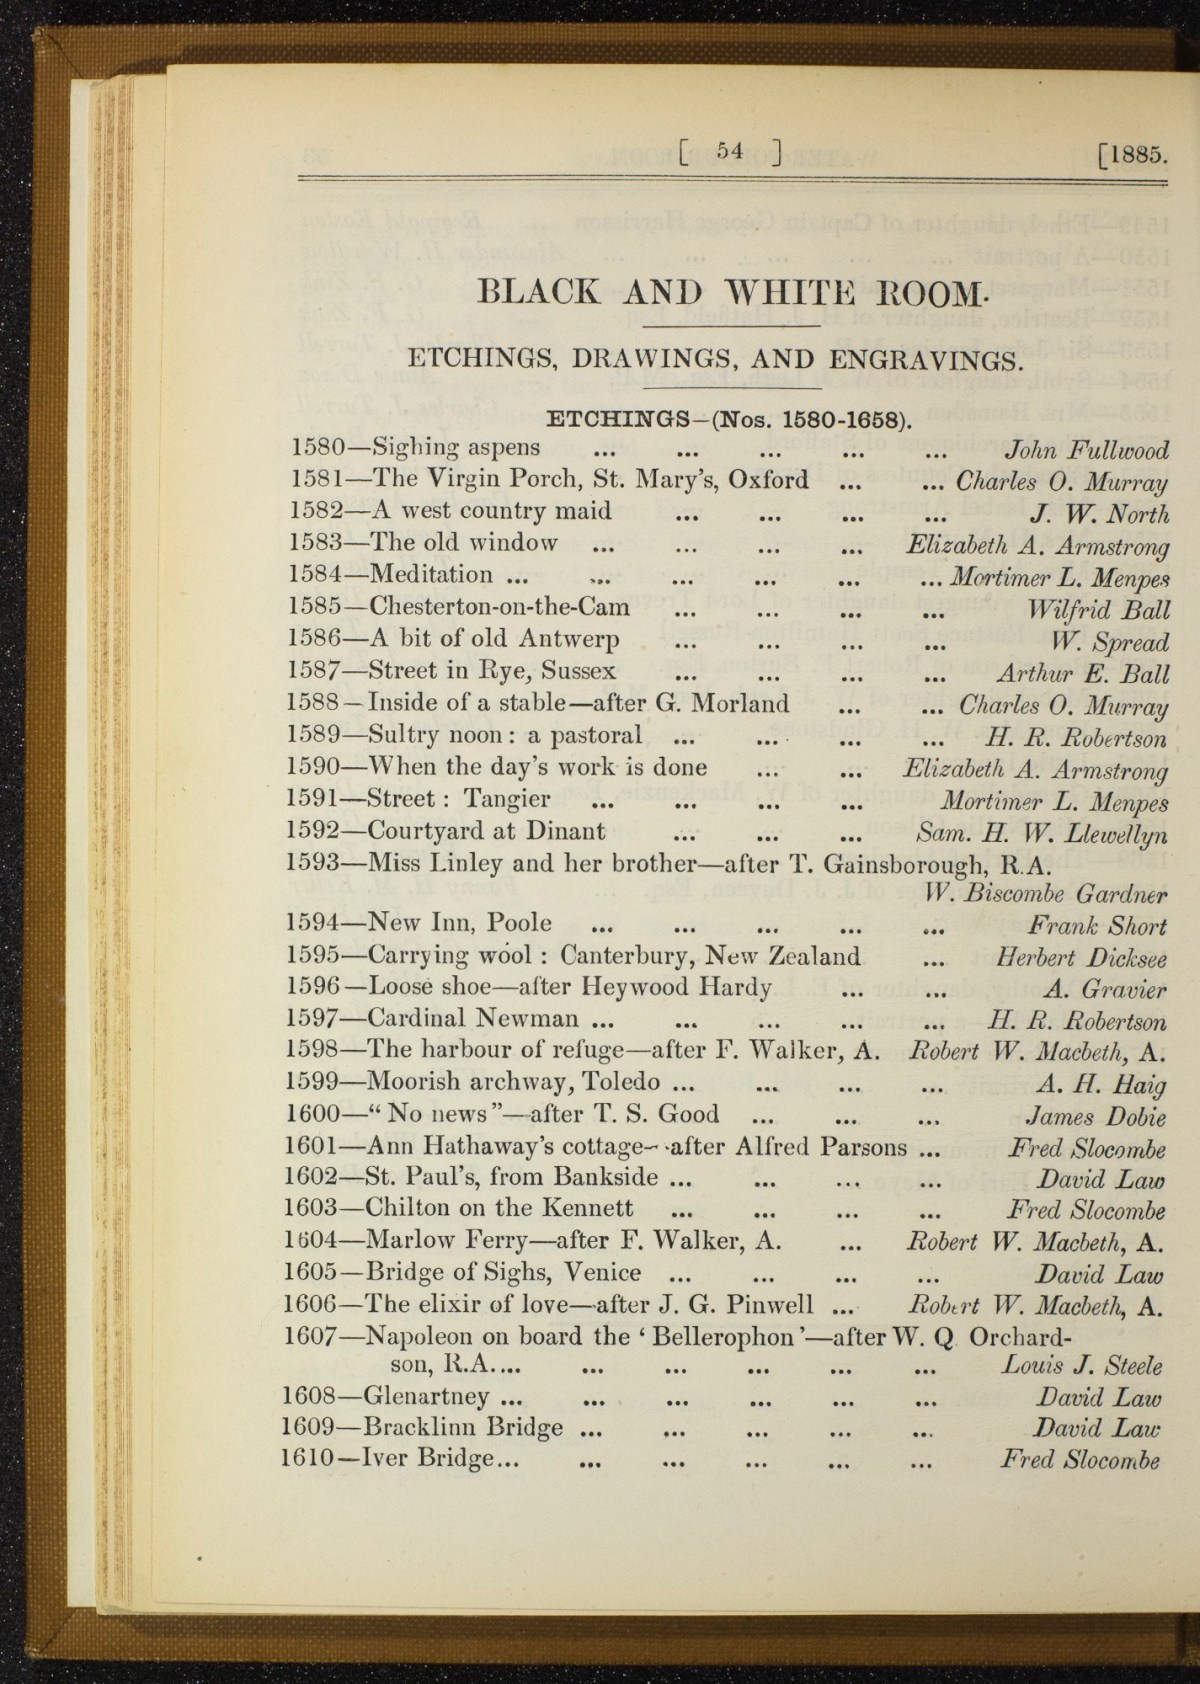 [ 54 ] [1885.
BLACK AND WHITE ROOM.
ETCHINGS, DRAWINGS, AND ENGRAVINGS.
ETCHINGS—(Nos. 1580-1658).
1580—Sighing aspens ... ... ... ... ... John Fullwood
1581—The Virgin Porch, St. Mary's, Oxford ... ... Charles O. Murray
1582—A west country maid ... ... ... ... J. W. North
1583—The old window ... ... ... ... Elizabeth A. Armstrong
1584—Meditation ... ... ... ... ... ... Mortimer L. Menpes
1585—Chesterton-on-the-Cam ... ... ... ... Wilfrid Ball
1586—A bit of old Antwerp ... ... ... ... W. Spread
1587—Street in Rye, Sussex ... ... ... ... Arthur E. Ball
1588—Inside of a stable—after G. Morland ... ... Charles O. Murray
1589—Sultry noon : a pastoral ... ... ... ... H. R. Robertson
1590—When the day's work is done ... ... Elizabeth A. Armstrong
1591—Street : Tangier ... ... ... ... Mortimer L. Menpes
1592—Courtyard at Dinant ... ... ... Sam. H. W. Llewellyn
1593—Miss Linley and her brother—after T. Gainsborough, R.A.
W. Biscombe Gardner
1594—New Inn, Poole ... ... ... ... ... Frank Short
1595—Carrying wool : Canterbury, New Zealand ... Herbert Dicksee
1596—Loose shoe—after Heywood Hardy ... ... A. Gravier
1597—Cardinal Newman ... ... ... ... ... H. R. Robertson
1598—The harbour of refuge—after F. Walker, A. Robert W. Macbeth, A.
1599—Moorish archway, Toledo ... ... ... ... A. H. Haig
1600—“ No news ”—after T. S. Good ... ... ... James Dobie
1601—Ann Hathaway's cottage—after Alfred Parsons ... Fred Slocombe
1602—St. Paul's, from Bankside ... ... ... ... David Law
1603—Chilton on the Kennett ... ... ... ... Fred Slocombe
1604—Marlow Ferry—after F. Walker, A. ... Robert W. Macbeth, A.
1605—Bridge of Sighs, Venice ... ... ... ... David Law
1606—The elixir of love—after J. G. Pinwell ... Robert W. Macbeth, A.
1607—Napoleon on board the ‘ Bellerophon ’—after W. Q. Orchard-
son, R.A.... ... ... ... ... ... Louis J. Steele
1608—Glenartney ... ... ... ... ... ... David Law
1609—Bracklinn Bridge ... ... ... ... ... David Law
1610—Iver Bridge... ... ... ... ... ... Fred Slocombe